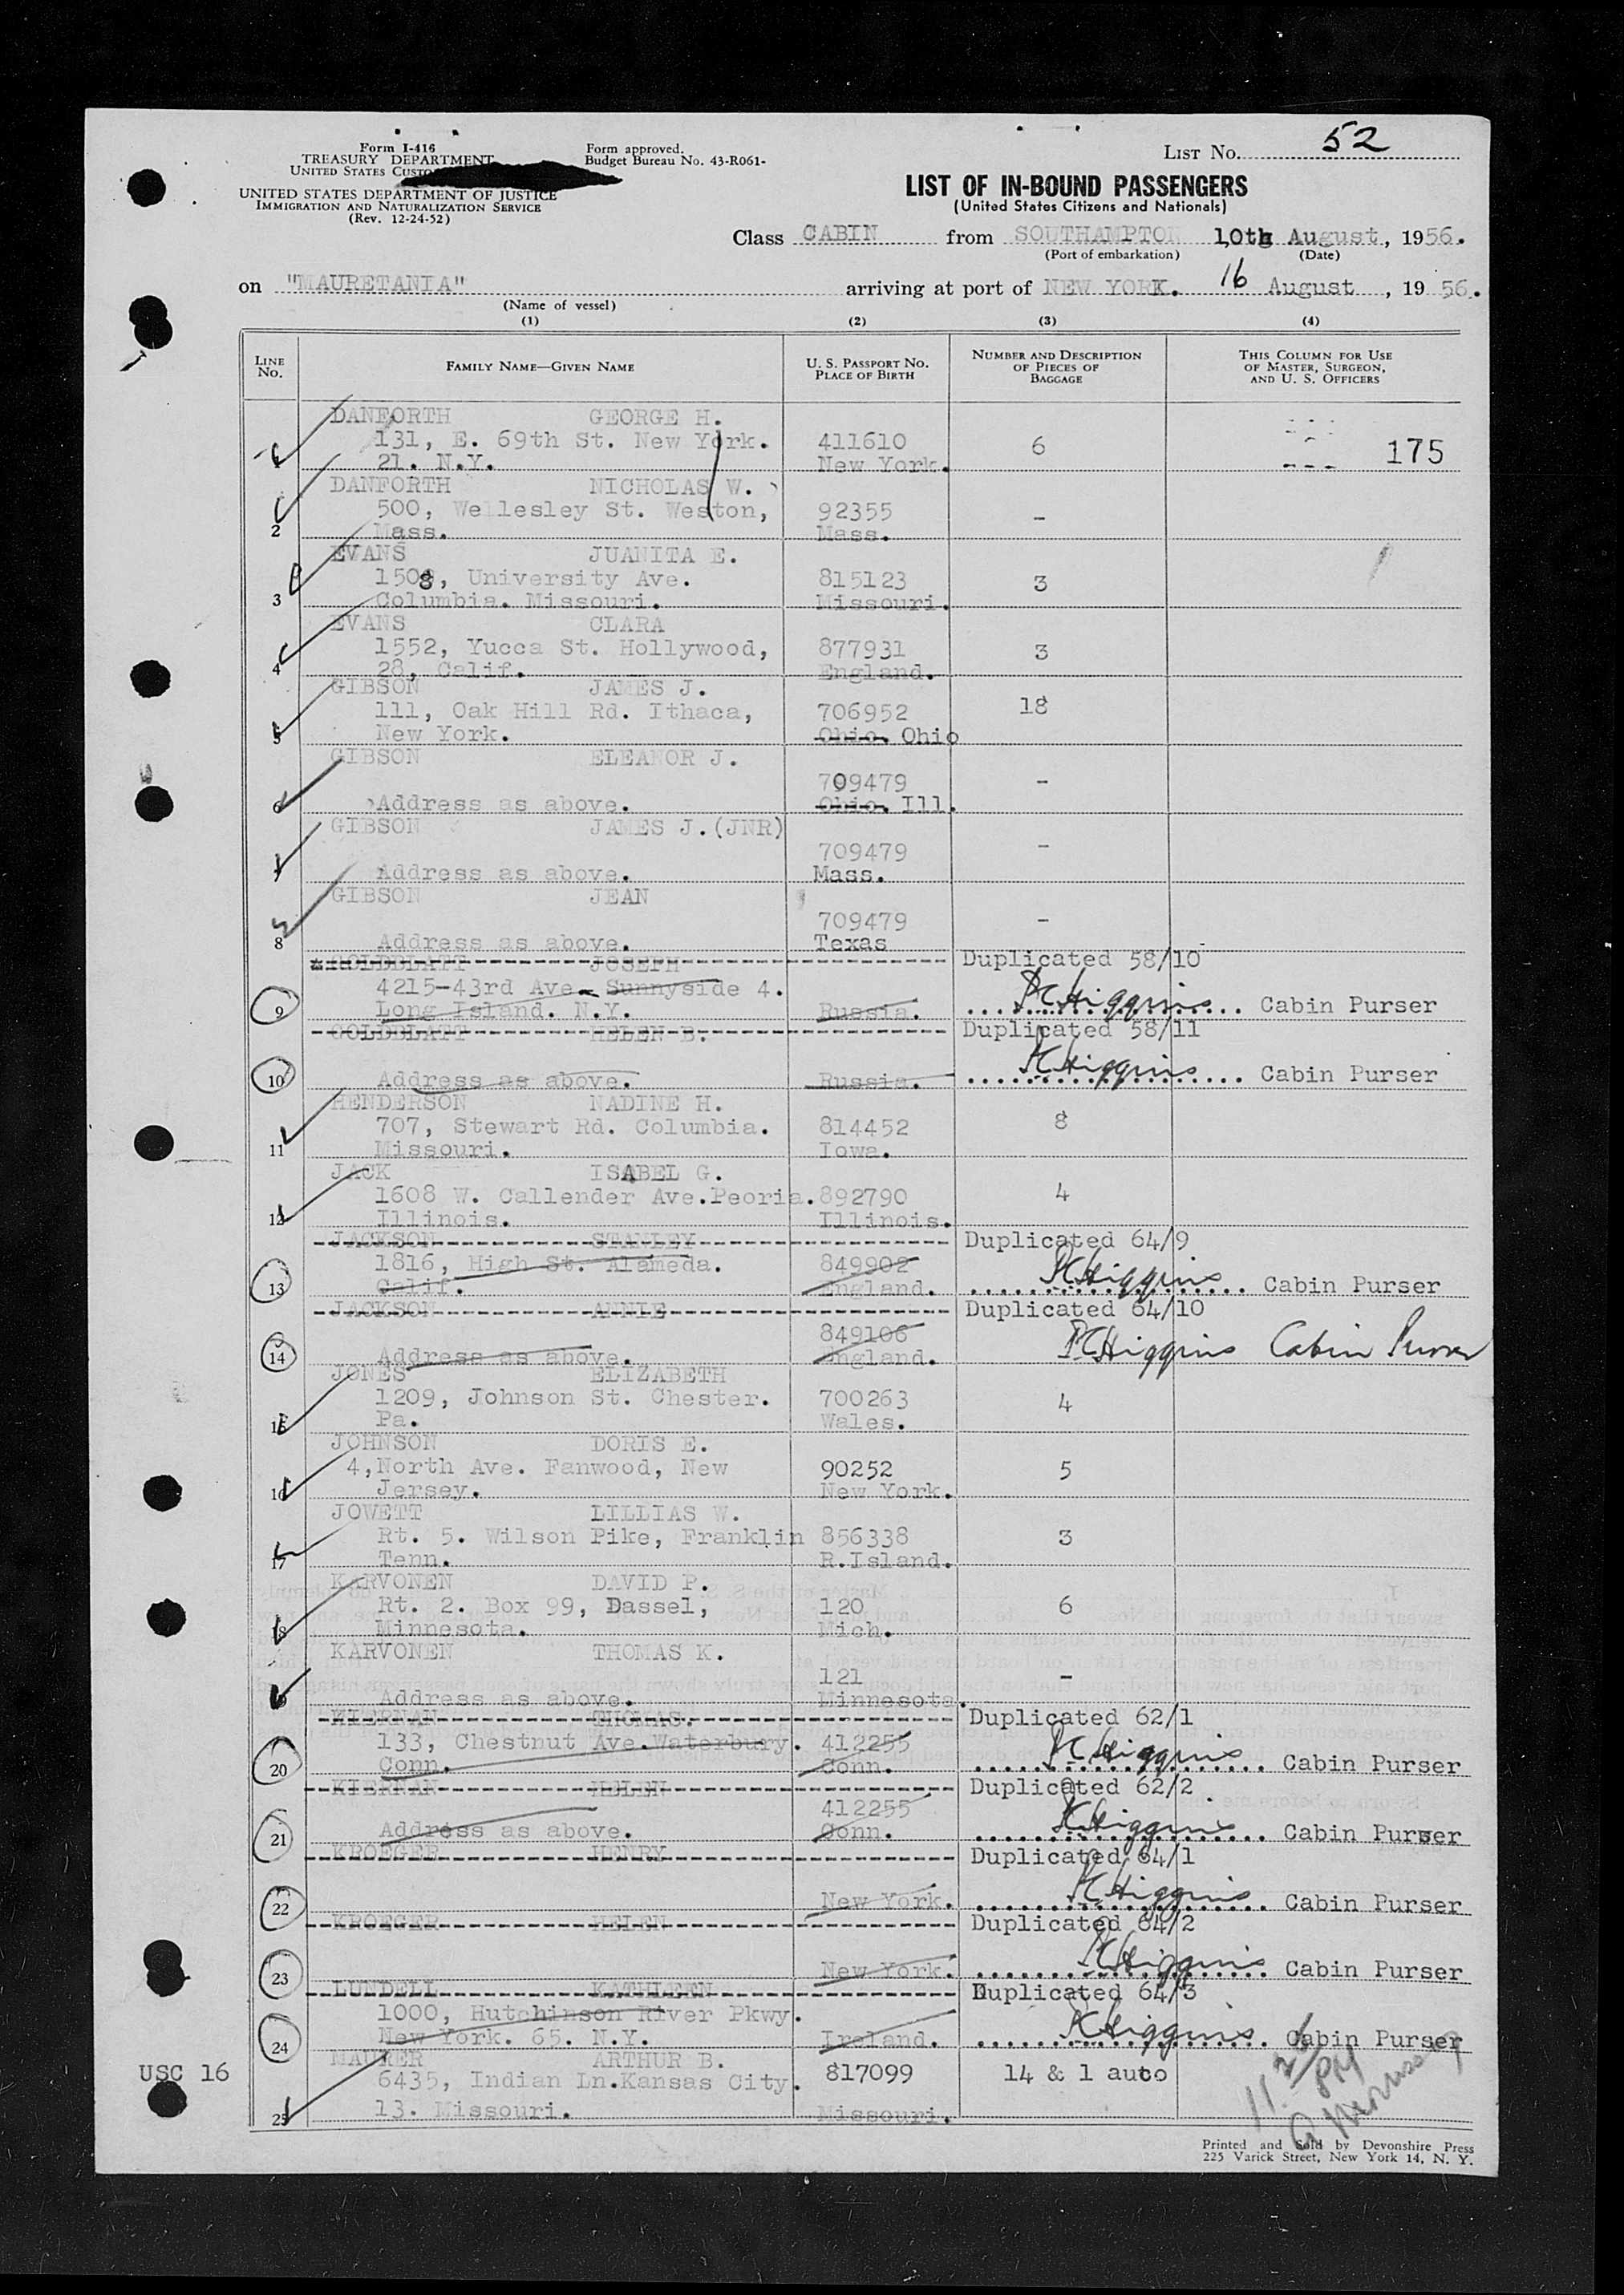 Form I-416
TREASURY DEPARTMENT
UNITED STATES
Form approved.
Budget Bureau No. 43-R061-
LIST No. 52
UNITED STATES DEPARTMENT OF JUSTICE
IMMIGRATION AND NATURALIZATION SERVICE
(Rev. 12-24-52)
LIST OF IN-BOUND PASSENGERS
(United States Citizens and Nationals)
Class CABIN from SOUTHAMPTON 10th August, 1956.
(Port of embarkation) (Date)
on "MAURETANIA" arriving at port of NEW YORK. 16 August, 1956.
(Name of vessel)
(1) (2) (3) (4)
LINE No. FAMILY NAME—GIVEN NAME U. S. PASSPORT NO. PLACE OF BIRTH NUMBER AND DESCRIPTION OF PIECES OF BAGGAGE THIS COLUMN FOR USE OF MASTER, SURGEON, AND U. S. OFFICERS
DANFORTH GEORGE H.
131, E. 69th St. New York. 411610 6 175
21. N.Y. New York.
DANFORTH NICHOLAS W.
500, Wellesley St. Weston, 92355 -
2 Mass. Mass.
EVANS JUANITA E.
1508, University Ave. 815123 3
3 Columbia. Missouri. Missouri.
EVANS CLARA
1552, Yucca St. Hollywood, 877931 3
4 28, Calif. England.
GIBSON JAMES J.
111, Oak Hill Rd. Ithaca, 706952 18
5 New York. Ohio. Ohio
GIBSON ELEANOR J.
709479 -
6 Address as above. Ohio. Ill.
GIBSON JAMES J.(JNR)
709479 -
7 Address as above. Mass.
GIBSON JEAN
709479 -
8 Address as above. Texas
GOLDBLATT JOSEPH Duplicated 58/10
4215-43rd Ave. Sunnyside 4.
9 Long Island. N.Y. Russia. Higgins Cabin Purser
GOLDBLATT HELEN B. Duplicated 58/11
10 Address as above. Russia. Higgins Cabin Purser
HENDERSON NADINE H.
707, Stewart Rd. Columbia. 814452 8
11 Missouri. Iowa.
JACK ISABEL G.
1608 W. Callender Ave.Peoria. 892790 4
12 Illinois. Illinois.
JACKSON STANLEY Duplicated 64/9
1816, High St. Alameda. 849902
13 Calif. England. Higgins Cabin Purser
JACKSON ANNIE Duplicated 64/10
849106
14 Address as above. England. Higgins Cabin Purser
JONES ELIZABETH
1209, Johnson St. Chester. 700263 4
15 Pa. Wales.
JOHNSON DORIS E.
4,North Ave. Fanwood, New 90252 5
16 Jersey. New York.
JOWETT LILLIAS W.
Rt. 5. Wilson Pike, Franklin 856338 3
17 Tenn. R.Island.
KARVONEN DAVID P.
Rt. 2. Box 99, Dassel, 120 6
18 Minnesota. Mich.
KARVONEN THOMAS K.
121 -
Address as above. Minnesota.
KIERNAN THOMAS. Duplicated 62/1
133, Chestnut Ave.Waterbury. 412255
20 Conn. Conn. Higgins Cabin Purser
KIERNAN HELEN Duplicated 62/2
412255
21 Address as above. Conn. Higgins Cabin Purser
KROEGER HENRY Duplicated 64/1
22 New York. Higgins Cabin Purser
KROEGER HELEN Duplicated 64/2
23 New York. Higgins Cabin Purser
LUNDELL KATHLEEN Duplicated 64/3
1000, Hutchinson River Pkwy.
24 New York. 65. N.Y. Ireland. Higgins Cabin Purser
MAURER ARTHUR B.
USC 16 6435, Indian Ln.Kansas City. 817099 14 & 1 auto
25 13. Missouri. Missouri.
Printed and Sold by Devonshire Press
225 Varick Street, New York 14, N. Y.